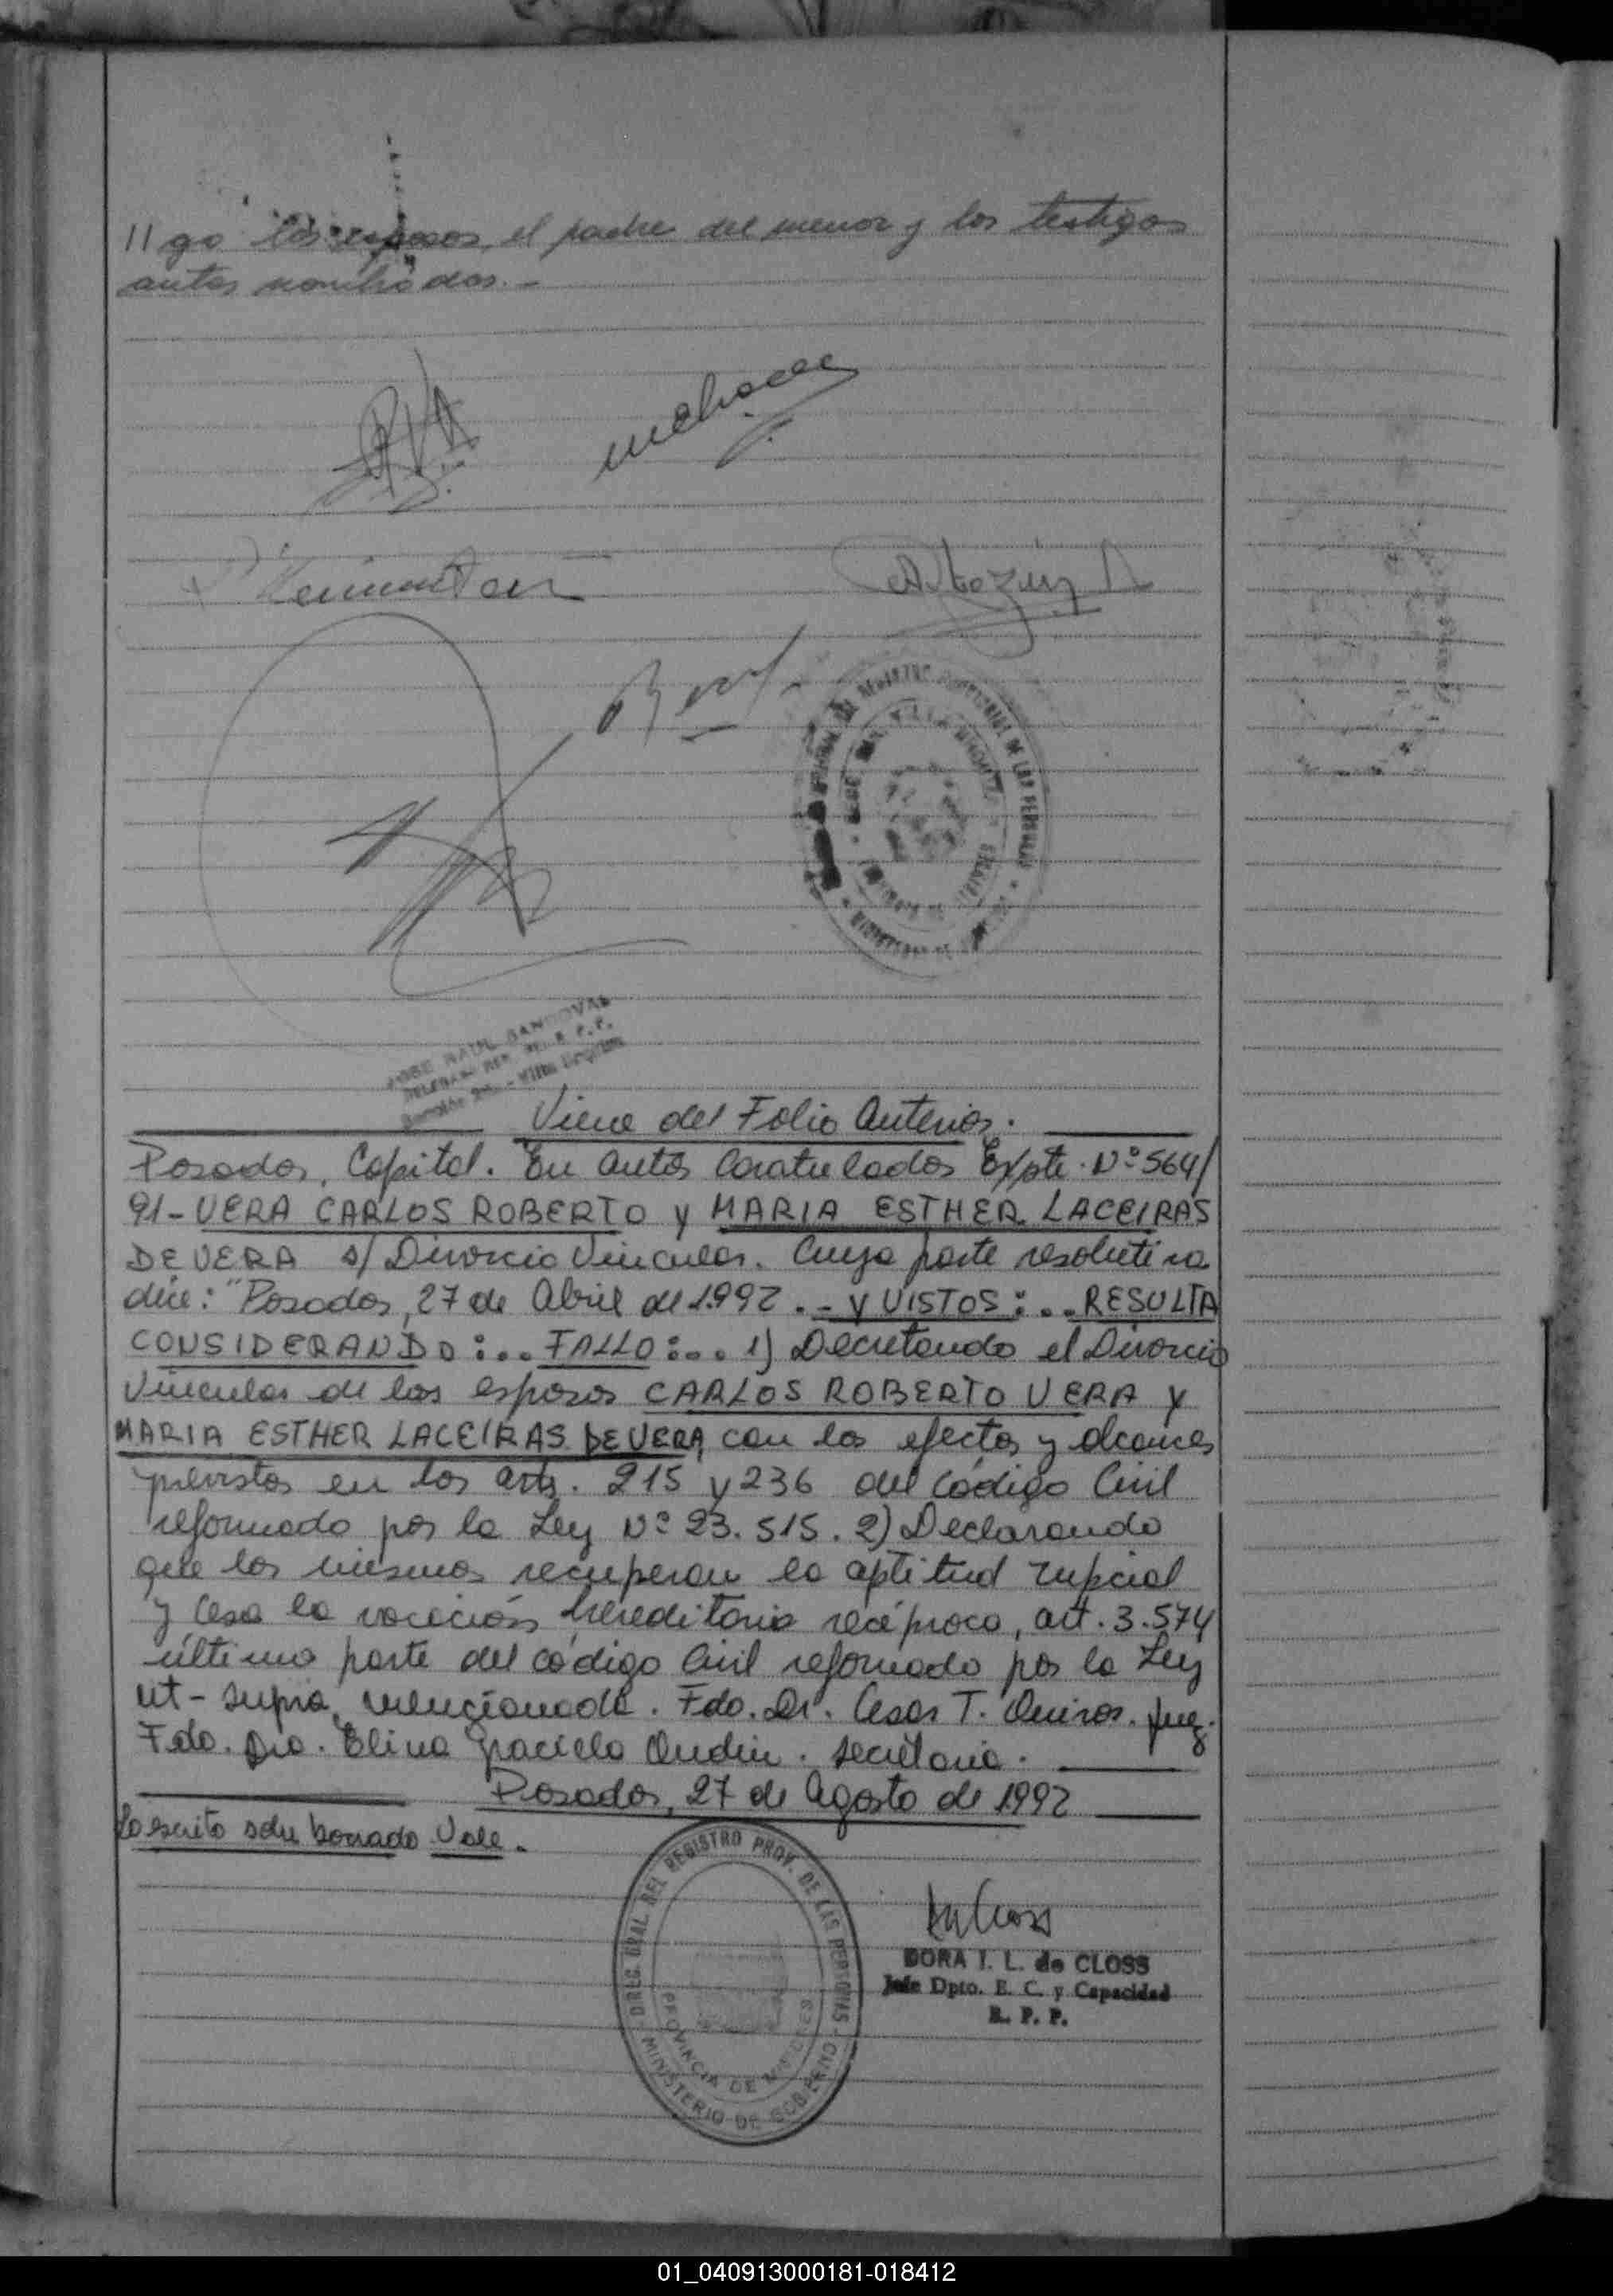 //go los esposos, el padre del menor y los testigos
antes nombrados.-
JOSE RAUL SANDOVAL
Viene del Folio Anterior.
Posadas, Capital. En autos Caratulados Expte. Nº 564/
91-VERA CARLOS ROBERTO y MARIA ESTHER LACEIRAS
DE VERA s/ Divorcio Vincular. Cuya parte resolutiva
dice: "Posadas, 27 de Abril de 1.992.- Y VISTOS:.. RESULTA
CONSIDERANDO:... FALLO:... 1) Decretando el Divorcio
Vincular de los esposos CARLOS ROBERTO VERA Y
MARIA ESTHER LACEIRAS DE VERA, con los efectos y alcances
previstos en los arts. 215 y 236 del Código Civil
reformado por la Ley Nº 23.515. 2) Declarando
que los mismos recuperan la aptitud nupcial
y cesa la vocación hereditaria recíproca, art. 3.574
última parte del código Civil reformado por la Ley
ut-supra mencionada. Fdo. Dr. Cesar T. Quiros. Juez.
Fdo. Dra. Elina Graciela Ondin. Secretaria.
Posadas, 27 de Agosto de 1992
Lo escrito sobre borrado Vale.
DIREC. GRAL. DEL REGISTRO PROV. DE LAS PERSONAS
PROVINCIA DE MISIONES
MINISTERIO DE GOBIERNO
DORA I. L. de CLOSS
Jefe Dpto. E. C. y Capacidad
R. P. P.
01_040913000181-018412